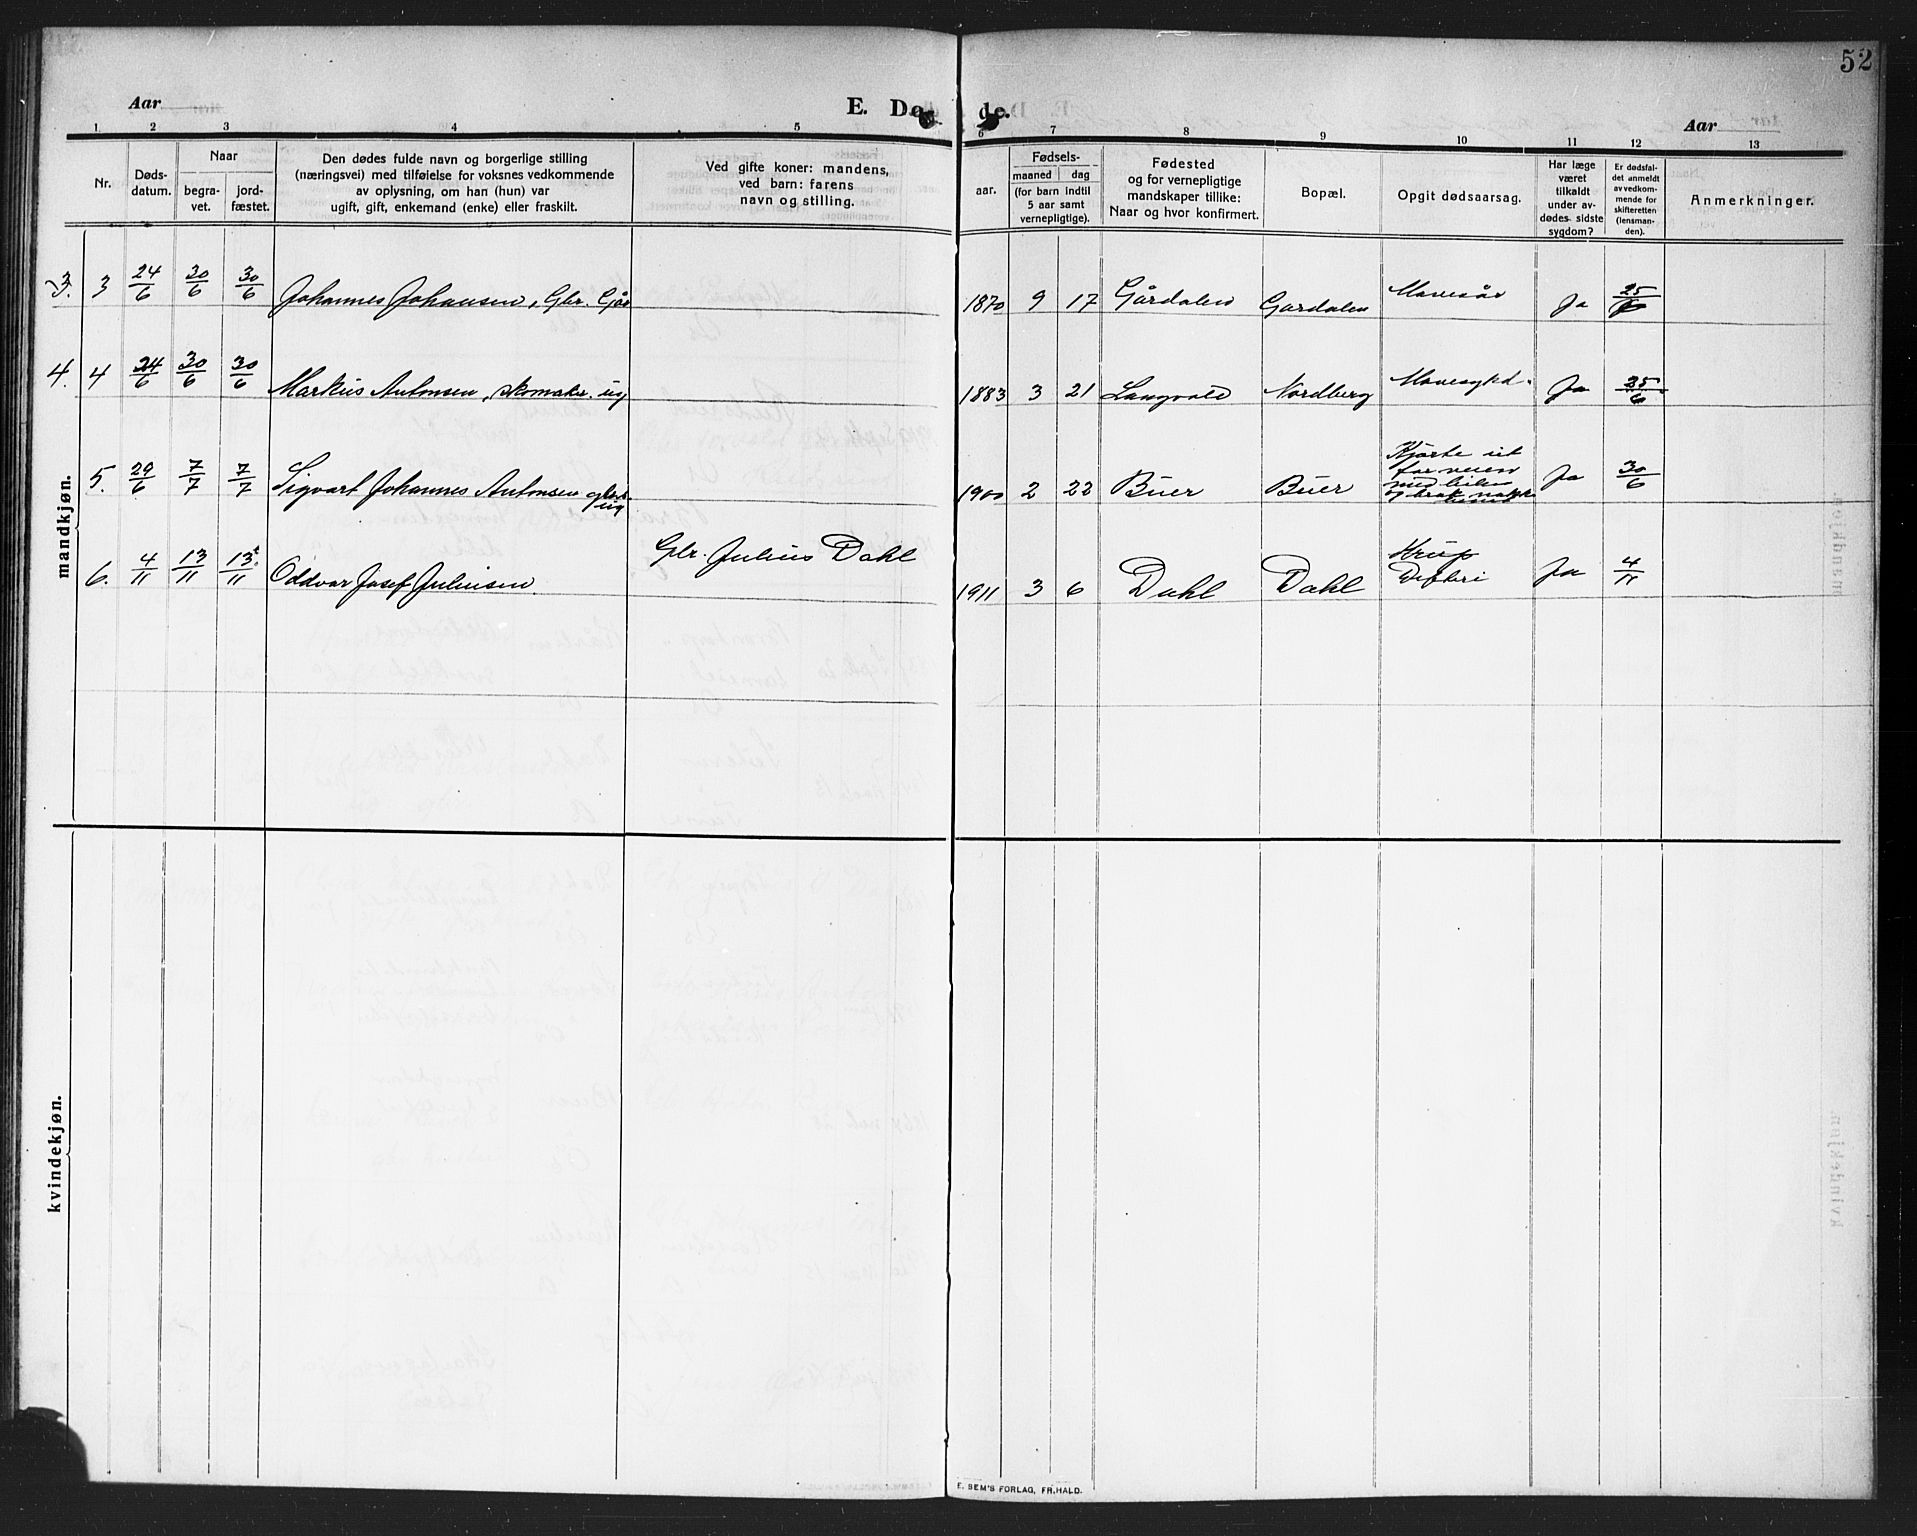 52
Aar
E. Døde.
Aar
1 2 3 4 5 6 7 8 9 10 11 12 13
Nr.
Døds-
datum.
Naar
begra-
vet.
jord-
fæstet.
Den dødes fulde navn og borgerlige stilling
(næringsvei) med tilføielse for voksnes vedkommende
av oplysning, om han (hun) var
ugift, gift, enkemand (enke) eller fraskilt.
Ved gifte koner: mandens,
ved barn: farens
navn og stilling.
Fødsels-
aar.
maaned dag
(for barn indtil
5 aar samt
vernepligtige).
Fødested
og for vernepligtige
mandskaper tillike:
Naar og hvor konfirmert.
Bopæl.
Opgit dødsaarsag.
Har læge
været
tilkaldt
under av-
dødes sidste
sygdom?
Er dødsfal-
det anmeldt
av vedkom-
mende for
skifteretten
(lensman-
den).
Anmerkninger.
mandkjøn.
3. 3 24/6 30/6 30/6 Johannes Johansen, Gbr. 1870 9 17 Gårdalen Gardalen Mavesår Ja 25/6
4. 4 24/6 30/6 30/6 Markus Antonsen, skomaker. ug 1883 3 21 Langvold Nordberg Mavesygd. Ja 25/6
5. 29/6 7/7 7/7 Sigvart Johannes Antonsen ug 1900 2 22 Buer Buer Kjørte ut
for veien
med bilen
og brak
Ja 30/6
6. 4/11 13/11 13/11 Oddvar Josef Juliusen. Gbr. Julius Dahl 1911 3 6 Dahl Dahl Krup
Difteri Ja 4/11
kvindekjøn.
E. SEM'S FORLAG, FR.HALD.